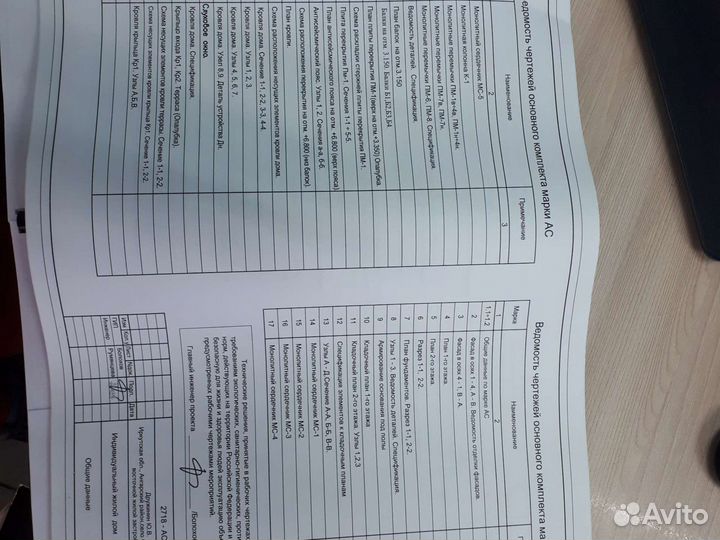 Ведомость чертежей основного комплекта ма
Марка
Наименование
1
2
1.1÷1.2 Общие данные по марке АС
2 Фасад в осях 1 - 4, А - В. Ведомость отделки фасадов.
3 Фасад в осях 4 - 1, В - А
4 План 1-го этажа.
5 План 2-го этажа.
6 Разрез 1-1, 2-2.
7 План фундаментов. Разрез 1-1, 2-2.
8 Узлы 1 - 3. Ведомость деталей. Спецификация.
9 Армирование основания под полы
10 Кладочный план 1-го этажа
11 Кладочный план 2-го этажа. Узлы 1,2,3
12 Спецификация элементов к кладочным планам
13 Узлы А - Д.Сечение А-А, Б-Б, В-В.
14 Монолитный сердечник МС-1
15 Монолитный сердечник МС-2
16 Монолитный сердечник МС-3
17 Монолитный сердечник МС-4
Технические решения, принятые в рабочих чертежах
требованиям экологических, санитарно-гигиенических, проти
норм, действующих на территории Российской Федерации и
безопасную для жизни и здоровья людей эксплуатацию объе
предусмотренных рабочими чертежами мероприятий.
Главный инженер проекта
2718 - АС
Дружинин Ю.В.
Иркутская обл., Ангарский район,
восточной жилой застро
Изм
Подп. Дата
ГИП
Инженер
Индивидуальный жилой дом
Общие данные
едомость чертежей основного комплекта марки АС
Наименование
Примечание
2
3
Монолитный сердечник МС-5
Монолитная колонна К-1
Монолитные перемычки ПМ-1в÷4в, ПМ-1н÷4н.
Монолитные перемычки ПМ-7в, ПМ-7н.
Монолитные перемычки ПМ-6, ПМ-8. Спецификация.
Ведомость деталей. Спецификация.
План балок на отм. 3.150
Балки на отм. 3.150. Балки Б1,Б2,Б3,Б4
План плиты перекрытия ПМ-1(верх на отм.+3.350) Опалубка.
Схема раскладки стержней плиты перекрытия ПМ-1.
Плита перекрытия Пм-1. Сечения 1-1 ÷ 5-5.
План антисейсмического пояса на отм. +6.800 (верх пояса)
Антисейсмический пояс. Узлы 1, 2. Сечения а-а, б-б.
Схема расположения перекрытия на отм. +6.800 (низ балок)
План кровли.
Схема расположения несущих элементов кровли дома.
Кровля дома. Сечение 1-1, 2-2, 3-3, 4-4.
Кровля дома. Узлы 1, 2, 3.
Кровля дома. Узлы 4, 5, 6, 7.
Кровля дома. Узел 8.9. Детали устройства Дн.
Слуховое окно.
Кровля дома. Спецификация.
Крыльцо входа Кр1, Кр2. Терраса (Опалубка).
Схема несущих элементов кровли террасы. Сечение 1-1, 2-2.
Схема несущих элементов кровли крыльца Кр1. Сечение 1-1, 2-2.
Кровля крыльца Кр1. Узлы А,Б,В.
Avito